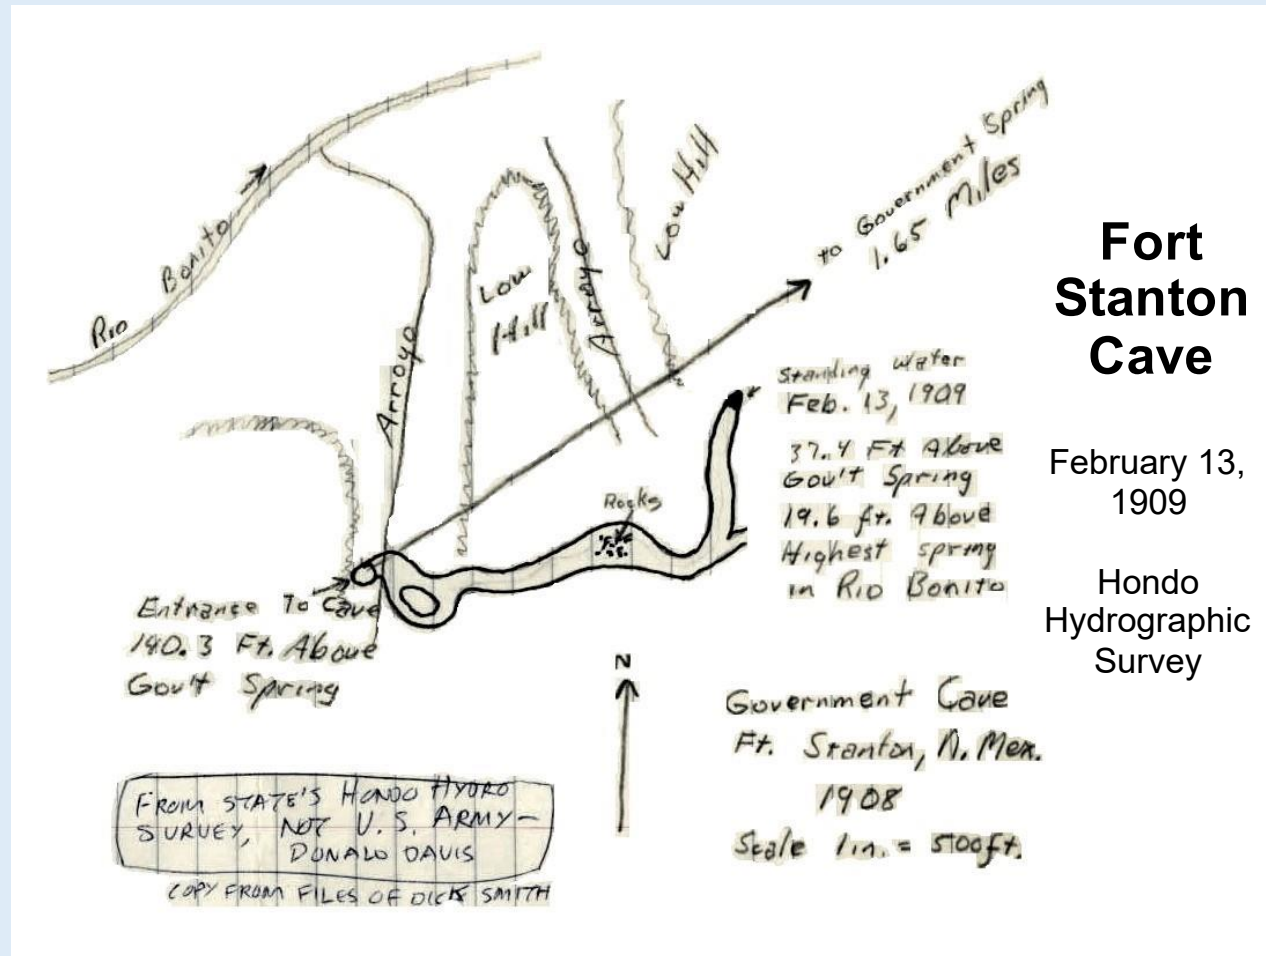 Rio Bonito
Arroyo
Low
Hill
Arroyo
Low Hill
to Government Spring
1.65 Miles
Standing water
Feb. 13, 1909
37.4 Ft Above
Gov't Spring
19.6 ft. Above
Highest spring
in Rio Bonito
Rocks
Entrance To Cave
140.3 Ft. Above
Gov't Spring
N
Government Cave
Ft. Stanton, N. Mex.
1908
Scale 1in. = 500ft.
FROM STATE'S HONDO HYDRO
SURVEY, NOT U.S. ARMY—
DONALD DAVIS
COPY FROM FILES OF DICK SMITH
Fort
Stanton
Cave
February 13,
1909
Hondo
Hydrographic
Survey